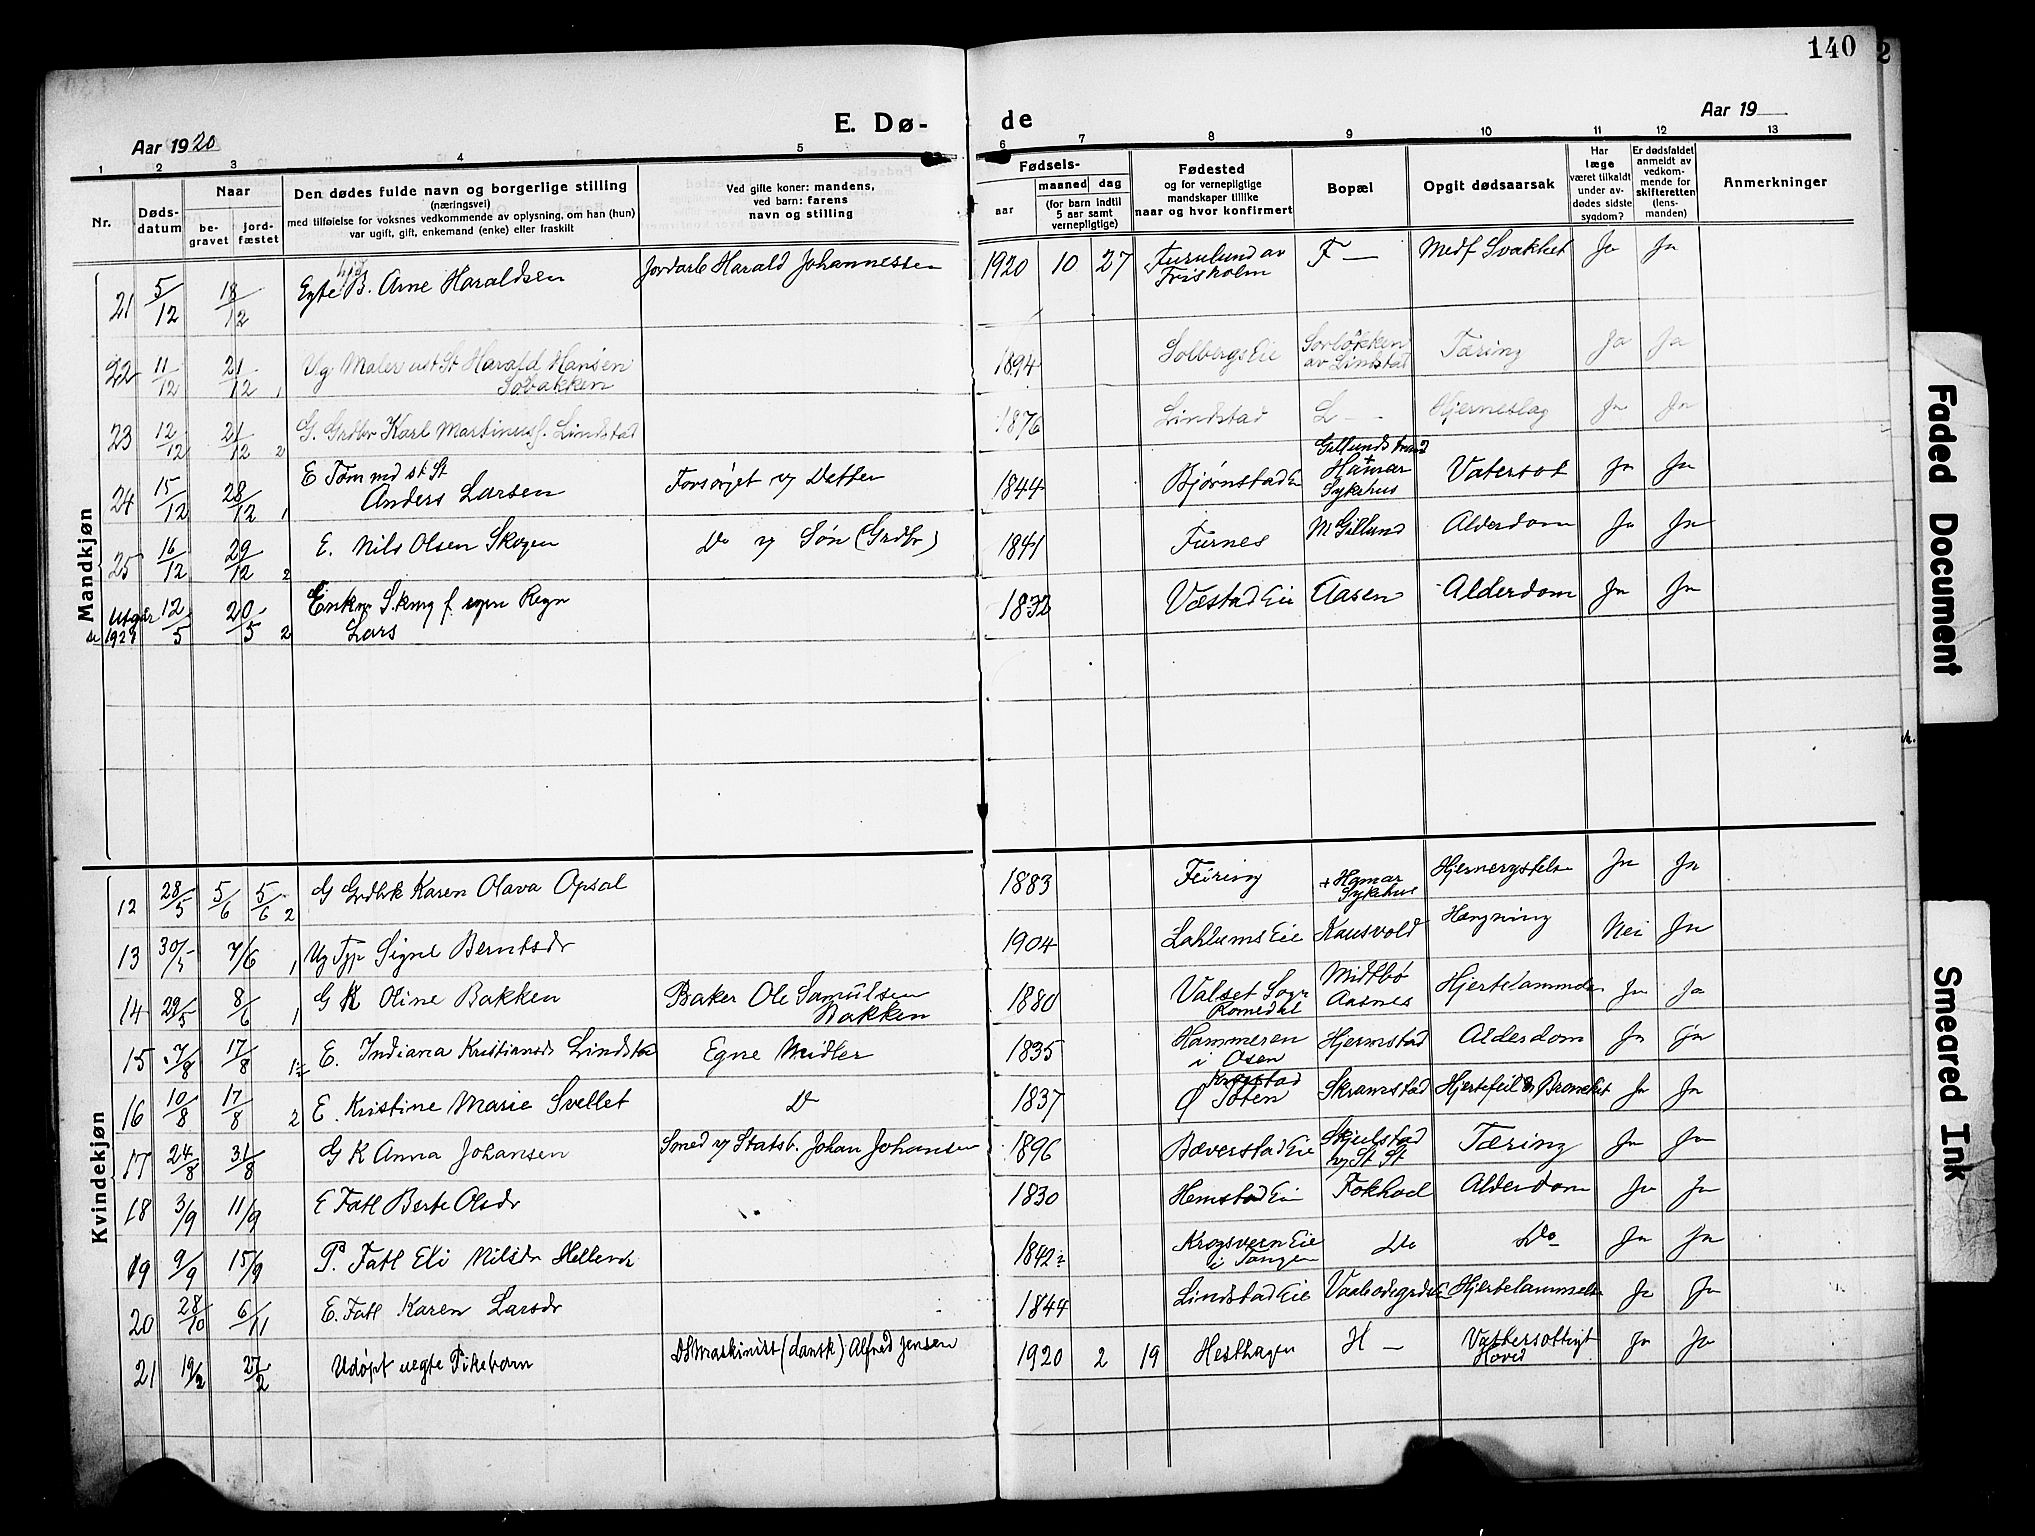 140
2
Aar 1920
E. Dø-
de
Aar 19
1 2 3 4 5 6 7 8 9 10 11 12 13
Nr.
Døds-
datum
Naar
be-
gravet
jord-
fæstet
Den dødes fulde navn og borgerlige stilling
(næringsvei)
med tilføielse for voksnes vedkommende av oplysning, om han (hun)
var ugift, gift, enkemand (enke) eller fraskilt
Ved gifte koner: mandens,
ved barn: farens
navn og stilling
Fødsels-
aar
maaned
dag
(for barn indtil
5 aar samt
vernepligtige)
Fødested
og for vernepligtige
mandskaper tillike
naar og hvor konfirmert
Bopæl
Opgit dødsaarsak
Har
læge
været tilkaldt
under av-
dødes sidste
sygdom?
Er dødsfaldet
anmeldt av
vedkom-
mende for
skifteretten
(lens-
manden)
Anmerkninger
Mandkjøn
21 5/12 18/12 Egte B. Arne Haraldsen Jordarb Harald Johannessen 1920 10 27 Furulund av Frisholm F — Medf Svakhet Ja Ja
22 11/12 21/12 1 Ug Maler ust St Harald Hansen Sobakken 1894 Solbergs Eie Sorløkken av Lindstad Tæring Ja Ja
23 12/12 21/12 2 G. Grdbr Karl Martinus f. Lindstad 1876 Lindstad L — Hjerneslag Ja Ja
24 15/12 28/12 1 E Tømmd st St Anders Larsen Forsørjet v/ Datter 1844 Bjørnstad E + Hamar Sykehus Vatersot Ja Ja
25 16/12 29/12 2 E. Nils Olsen Skogen Do v/ Søn (Grdbr) 1841 Furnes M Gillund Alderdom Ja Ja
Utgår 12/5 20/5 2 Enkm Skmg f egen Regn Lars 1832 Væstad Eie Aasen Alderdom Ja Ja
Kvindekjøn
12 28/5 5/6 5/6 2 G Grdbrk Karen Olava Opsal 1883 Feiring + Hamar Sykehus Hjernerystelse Ja Ja
13 30/5 7/6 1 Ug Tjp Signe Berntsdr 1904 Lahlums Eie Kausvold Hængning Nei Ja
14 29/5 8/6 1 G K Oline Bakken Baker Ole Samulsen Bakken 1880 Valset Sogn Romedal Midtbø Aasnes Hjertelammelse Ja Ja
15 7/8 17/8 E. Indiana Kristiansdr Lindstad Egne Midler 1835 Hammeren i Osen Hjermstad Alderdom Ja Ja
16 10/8 17/8 2 E. Kristine Marie Svellet Do 1837 Krogstad Ø Toten Skramstad Hjertefeil & Bronckit Ja Ja
17 24/8 31/8 G K Anna Johansen Smed v/ Statsb. Johan Johansen 1896 Bæverstad Eie Skjelstad v/ St St Tæring Ja Ja
18 3/9 11/9 E Fatl Berte Olsdr 1830 Hemstad Eie Fokhol Alderdom Ja Ja
19 9/9 15/9 P. Fatl Eli Nilsdr 1842 Krogsvern Eie i Tangen Do Do Ja Ja
20 28/10 6/11 E. Fatl Karen Larsdr 1844 Lindstad Eie Hjertelammelse Ja Ja
21 19/2 27/2 Udøpt uegte Pikebarn Maskinist (dansk) Alfred Jensen 1920 2 19 Hesthagen H — Hoved Ja Ja
Faded Document
Smeared Ink